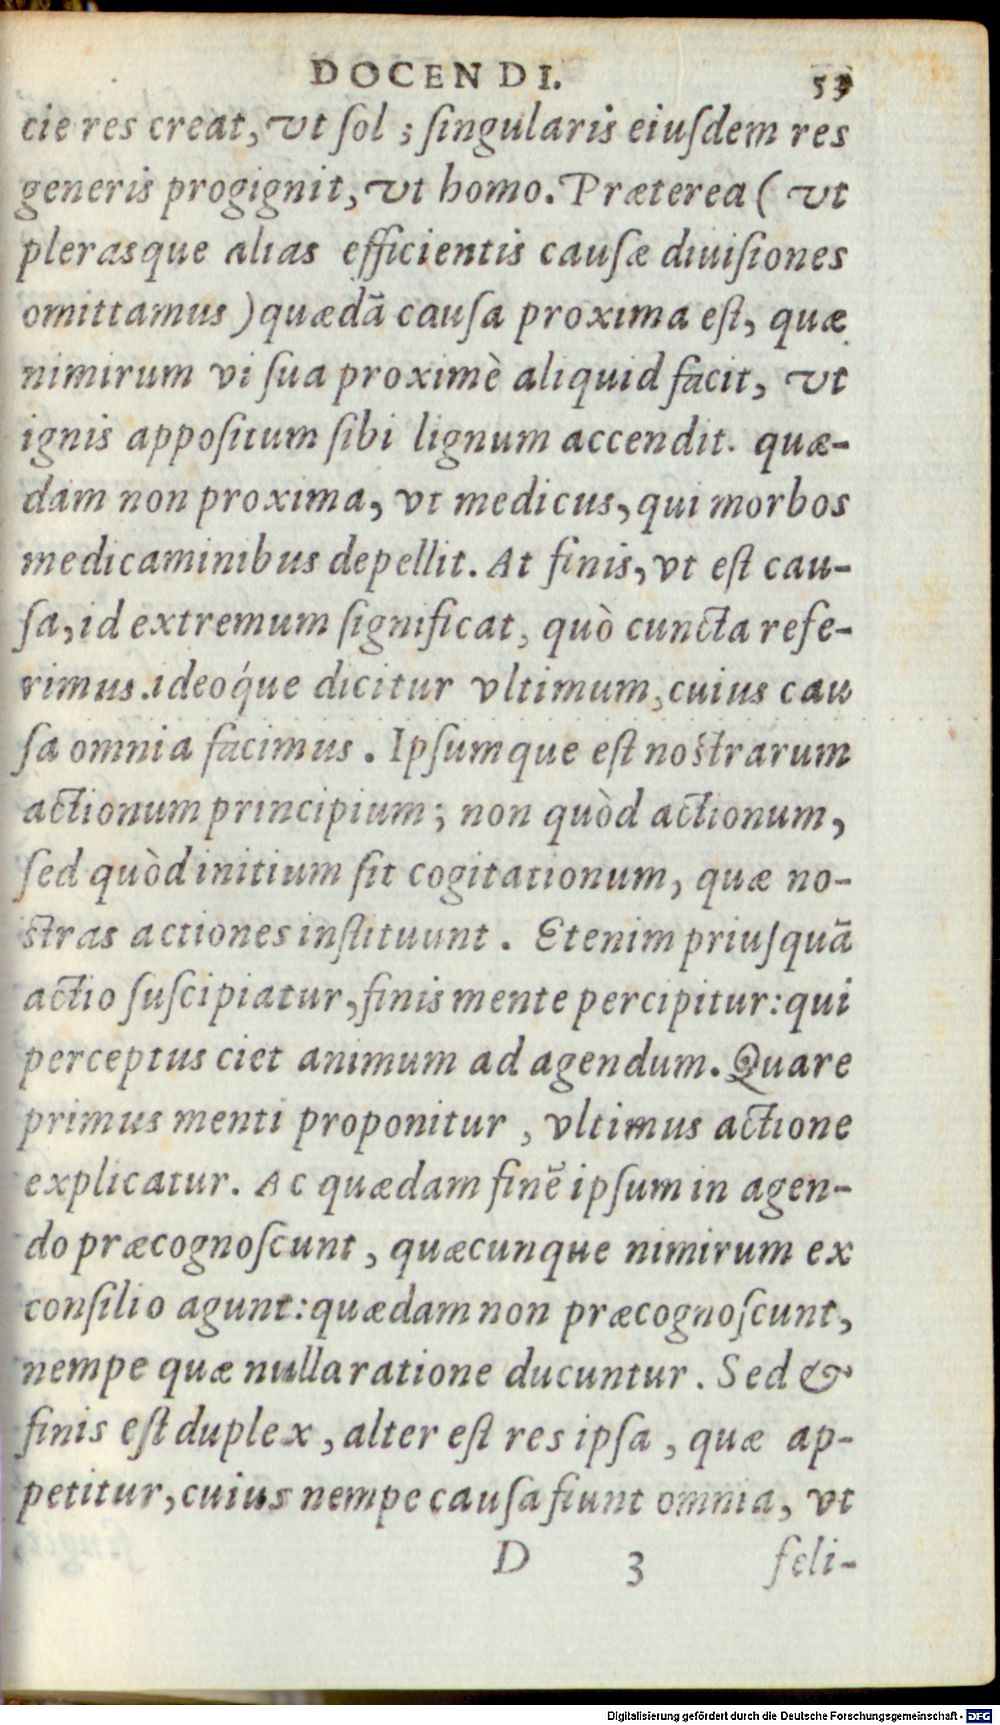 DOCENDI. 53
cie res creat, vt ſol; ſingularis eiuſdem res
generis progignit, vt homo. Præterea ( vt
plerasque alias efficientis cauſæ diuiſiones
omittamus ) quædã cauſa proxima eſt, quæ
nimirum vi ſua proximè aliquid facit, vt
ignis appoſitum ſibi lignum accendit. quæ-
dam non proxima, vt medicus, qui morbos
medicaminibus depellit. At finis, vt eſt cau-
ſa, id extremum ſignificat, quò cuncta refe-
rimus. ideoq́ue dicitur vltimum, cuius cau
ſa omnia facimus. Ipſumque eſt noſtrarum
actionum principium; non quòd actionum,
ſed quòd initium ſit cogitationum, quæ no-
ſtras actiones inſtituunt. Etenim priuſquã
actio ſuſcipiatur, finis mente percipitur: qui
perceptus ciet animum ad agendum. Quare
primus menti proponitur, vltimus actione
explicatur. Ac quædam finẽ ipſum in agen-
do præcognoſcunt, quæcunque nimirum ex
conſilio agunt: quædam non præcognoſcunt,
nempe quæ nulla ratione ducuntur. Sed &
finis eſt duplex, alter eſt res ipſa, quæ ap-
petitur, cuius nempe cauſa fiunt omnia, vt
D 3 feli-
Digitalisierung gefördert durch die Deutsche Forschungsgemeinschaft - DFG